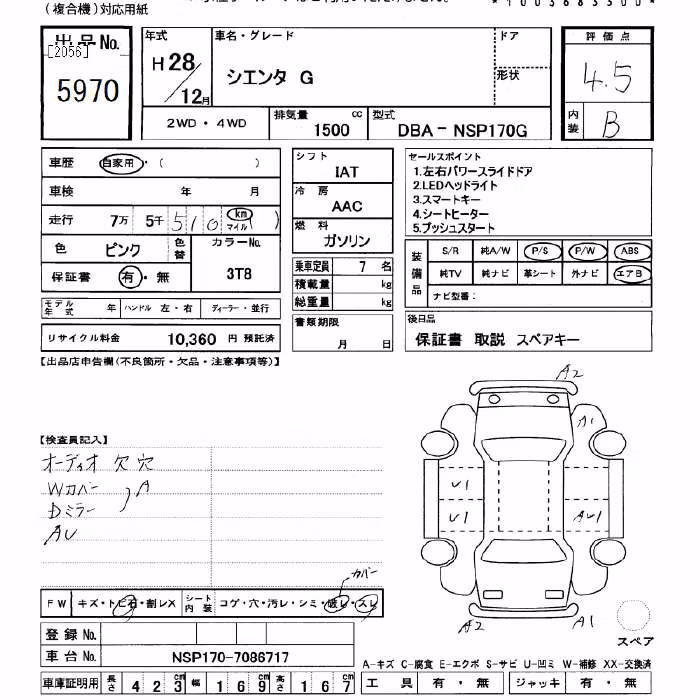 (複合機)対応用紙
*1003683500*
出品No.
[2056]
5970
年式
H28/12月
車名・グレード
シエンタ G
ドア
形状
2WD・4WD
排気量 1500 cc
型式 DBA－NSP170G
評価点
4.5
内装 B
車歴 自家用・( )
車検 年 月
走行 7万 5千 510 km マイル ( )
色 ピンク 色替 カラーNo. 3T8
保証書 有・無
モデル年式 年 ハンドル 左・右 ディーラー・並行
リサイクル料金 10,360 円 預託済
シフト
IAT
冷房
AAC
燃料
ガソリン
乗車定員 7 名
積載量 kg
総重量 kg
書類期限
月 日
セールスポイント
1.左右パワースライドドア
2.LEDヘッドライト
3.スマートキー
4.シートヒーター
5.プッシュスタート
装備品
S/R 純A/W P/S P/W ABS
純TV 純ナビ 革シート 外ナビ エアB
ナビ型番：
後日品
保証書 取説 スペアキー
【出品店申告欄(不良箇所・欠品・注意事項等)】
【検査員記入】
オーディオ 欠 穴
Wカバー
Dミラー
A
AU
カバー
FW キズ・トビ石・割レX シート内装 コゲ・穴・汚レ・シミ・破レ・スレ
登録No.
車台No. NSP170-7086717
車庫証明用 長さ 423cm 幅 169cm 高さ 167cm
A2
A1
U1
U1
AU1
A2
A1
スペア
A-キズ C-腐食 E-エクボ S-サビ U-凹ミ W-補修 XX-交換済
工具 有・無 ジャッキ 有・無